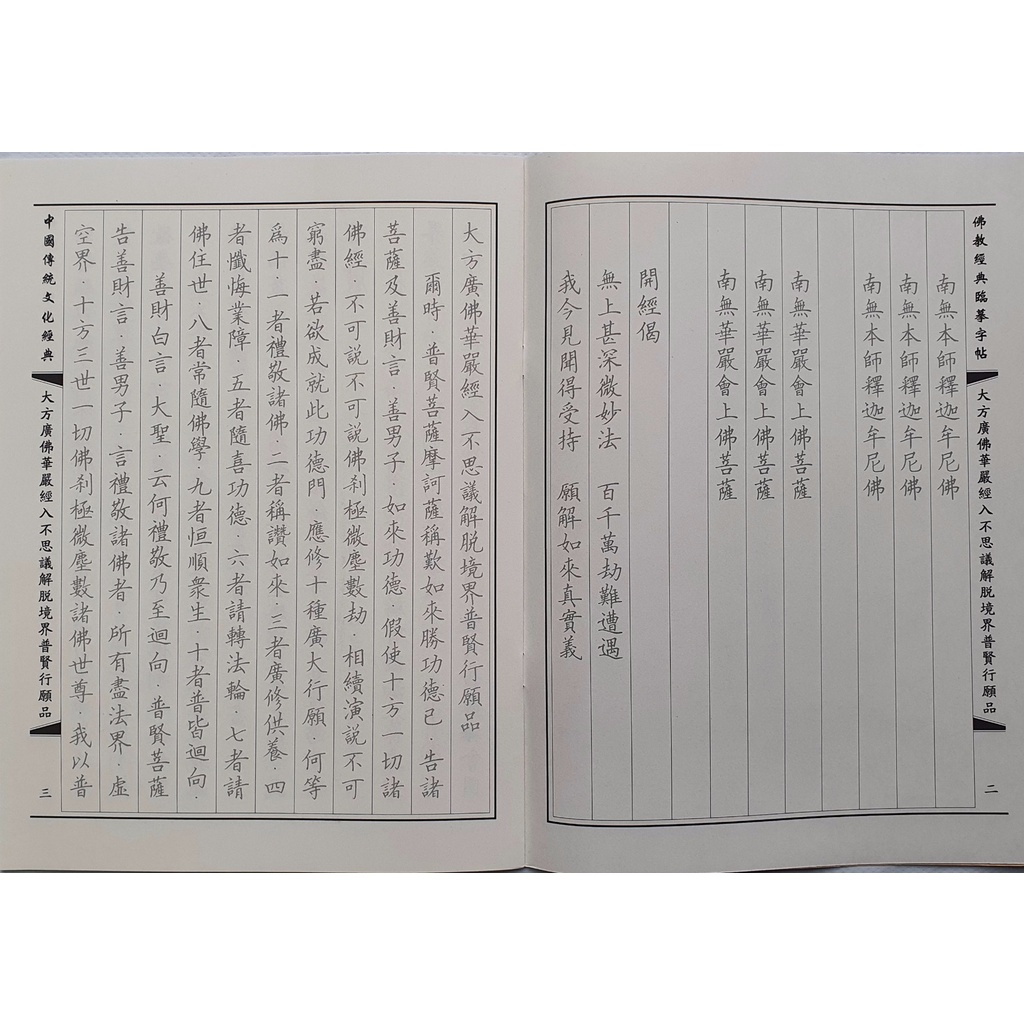 佛教經典臨摹字帖
大方廣佛華嚴經入不思議解脱境界普賢行願品
二
南無本師釋迦牟尼佛
南無本師釋迦牟尼佛
南無本師釋迦牟尼佛
南無華嚴會上佛菩薩
南無華嚴會上佛菩薩
南無華嚴會上佛菩薩
開經偈
無上甚深微妙法 百千萬劫難遭遇
我今見聞得受持 願解如來真實義
大方廣佛華嚴經入不思議解脱境界普賢行願品
爾時·普賢菩薩摩訶薩稱歎如來勝功德已·告諸
菩薩及善財言·善男子·如來功德·假使十方一切諸
佛經·不可説不可説佛刹極微塵數劫·相續演説不可
窮盡·若欲成就此功德門·應修十種廣大行願·何等
爲十·一者禮敬諸佛·二者稱讚如來·三者廣修供養·四
者懺悔業障·五者隨喜功德·六者請轉法輪·七者請
佛住世·八者常隨佛學·九者恒順衆生·十者普皆迴向·
善財白言·大聖·云何禮敬乃至迴向·普賢菩薩
告善財言·善男子·言禮敬諸佛者·所有盡法界·虛
空界·十方三世一切佛刹極微塵數諸佛世尊·我以普
中國傳統文化經典
大方廣佛華嚴經入不思議解脱境界普賢行願品
三